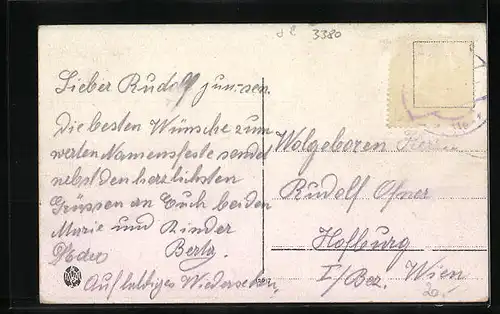 3380
Lieber Rudolf jun-sen.
Die besten Wünsche zum
werten Namensfeste sendet
nebst den herzlichsten
Grüssen an Euch beiden
Marie und Kinder
Berta.
Auf baldiges Wiedersehen,
Wolgeboren Herrn
Rudolf Ofner
Hofburg
I/Bez. Wien
20.